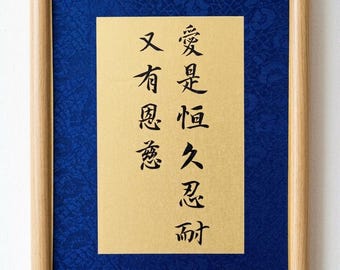 愛是恒久忍耐
又有恩慈